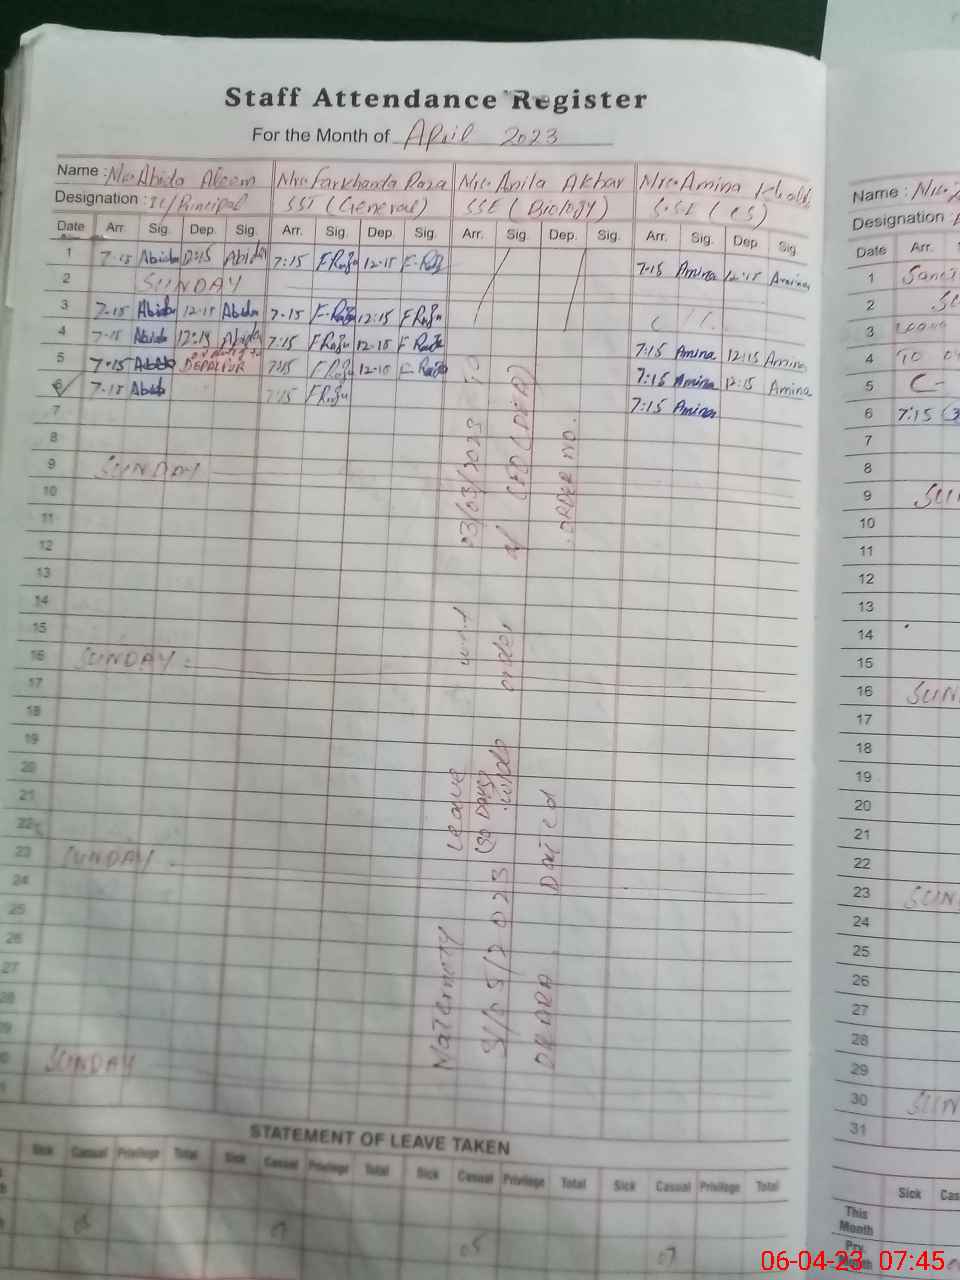 Staff Attendance Register
For the Month of April 2023
Name : Mrs. Abida Aleem Mrs. Farkhanda Raza Mrs. Anila Akbar Mrs. Amina Khalid
Designation : Ic/Principal SST (General) SSE (Biology) S.SE (CS)
Date Arr. Sig. Dep. Sig. Arr. Sig. Dep. Sig. Arr. Sig. Dep. Sig. Arr. Sig. Dep. Sig.
1 7-15 Abida 12:15 Abida 7:15 F Raza 12-15 F-Raza 7-15 Amina 12:15 Amina
2 SUNDAY
3 7-15 Abida 12-15 Abida 7-15 F-Raza 12:15 F Raza
4 7-15 Abida Abida 7:15 F Raza 12-15 F Raza 7:15 Amina 12:15 Amina
5 7-15 Abida DEPALPUR 7:15 F Raza 12-15 F-Raza 7:15 Amina 12:15 Amina
6 7-15 Abida 7:15 F Raza 7:15 Amina
7
8
9 SUNDAY
10
11
12
13
14
15
16 SUNDAY
17
18
19
20
21
22
23 SUNDAY
24
25
26
27
28
29
30 SUNDAY
Maternity Leave w.e.f 03/03/2023 TO
31/05/2023 (90 Days) under order of CEO (DEA)
OKARA Dated ORDER NO.
STATEMENT OF LEAVE TAKEN
Sick Casual Privilege Total Sick Casual Privilege Total Sick Casual Privilege Total Sick Casual Privilege Total
05 07
Name : Mrs.
Designation :
Date Arr.
1
2
3
4 TO
5 C-
6 7:15
7
8
9 SUN
10
11
12
13
14
15
16 SUN
17
18
19
20
21
22
23 SUN
24
25
26
27
28
29
30 SUN
31
Sick Cas
This Month
Prv. Month
06-04-23 07:45